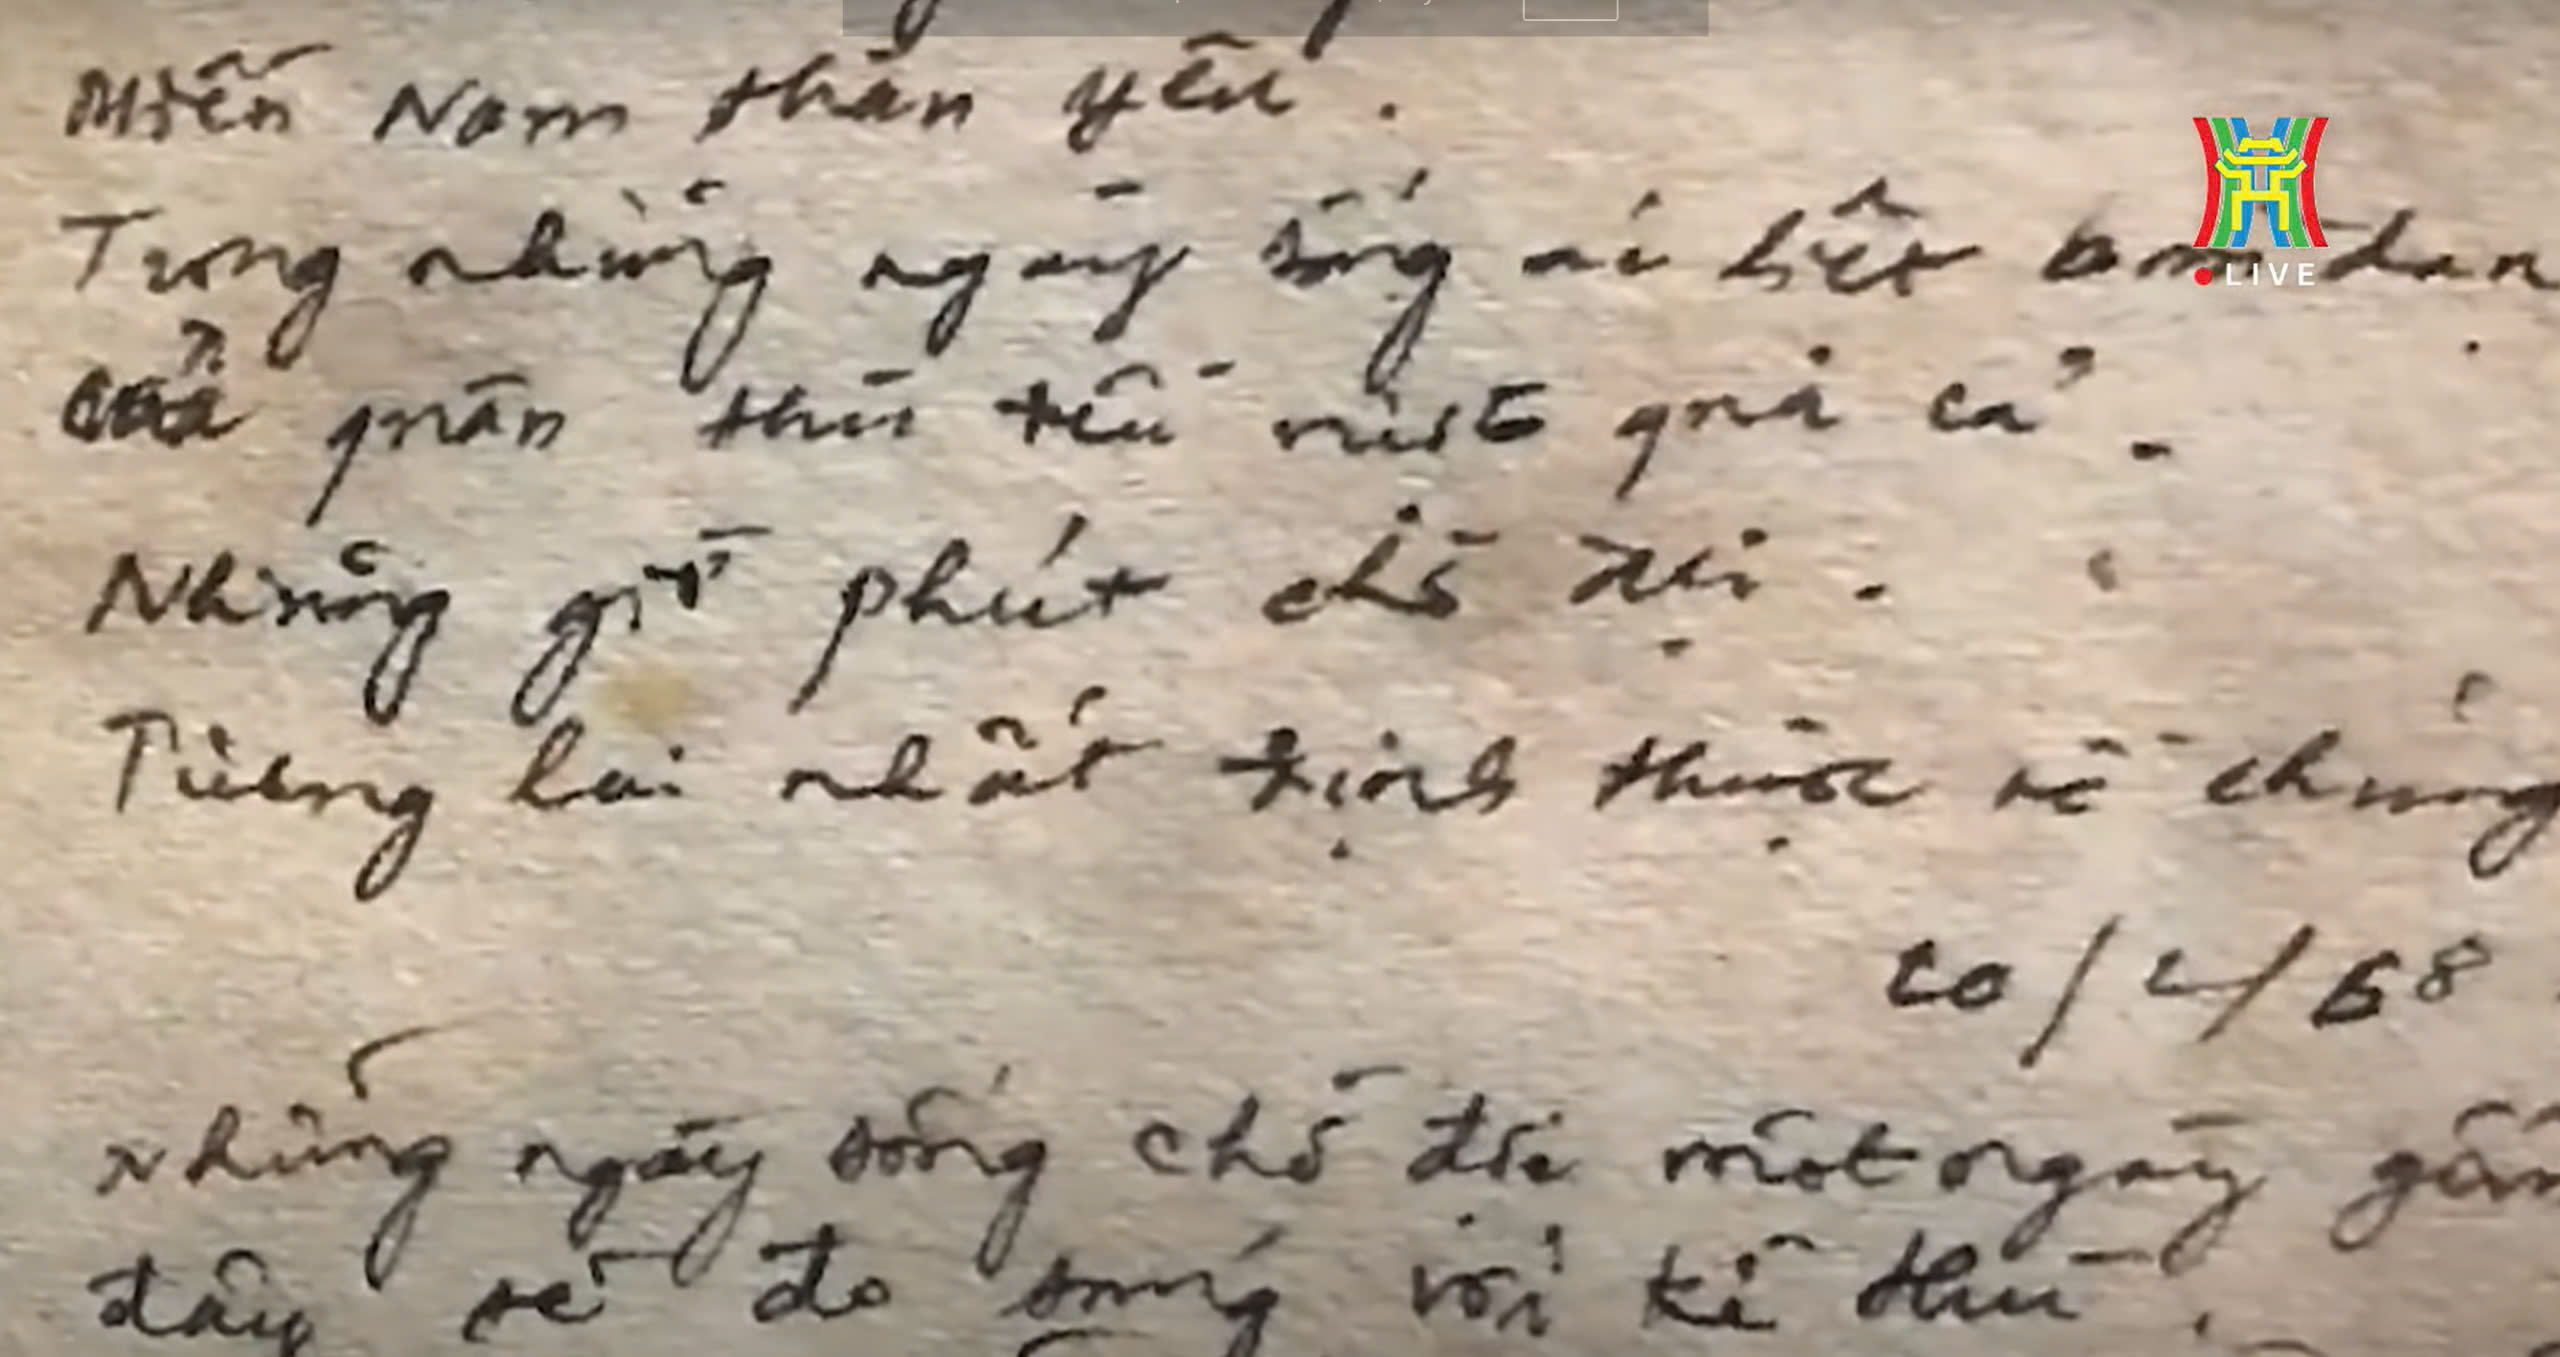 Miền Nam thân yêu.
Trong những ngày sống ác liệt bom đạn
của quân thù tếu quá cả.
Những giờ phút chờ đợi.
Tương lai nhất định thuộc về chúng
20/2/68
Những ngày sống chờ đợi một ngày gần
đây sẽ đo súng với kẻ thù.
LIVE